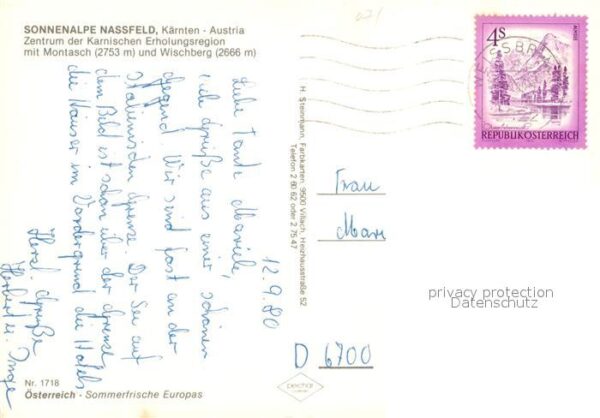 SONNENALPE NASSFELD, Kärnten - Austria
Zentrum der Karnischen Erholungsregion
mit Montasch (2753 m) und Wischberg (2666 m)
12.9.80
Liebe Tante Mariele,
viele Grüße aus einer schönen
Gegend. Wir sind fast an der
italienischen Grenze. Der See auf
dem Bild ist schon über der Grenze
die Häuser im Vordergrund die Hotels
Herzl. Grüße
Herbert u. Inge
Nr. 1718
Österreich - Sommerfrische Europas
H. Steinmann, Farbkarten, 9500 Villach, Heizhausstraße 52
Telefon 2 60 62 oder 2 75 47
pechar
4S
ALMSEE
REPUBLIK ÖSTERREICH
Frau
D 6700
privacy protection
Datenschutz